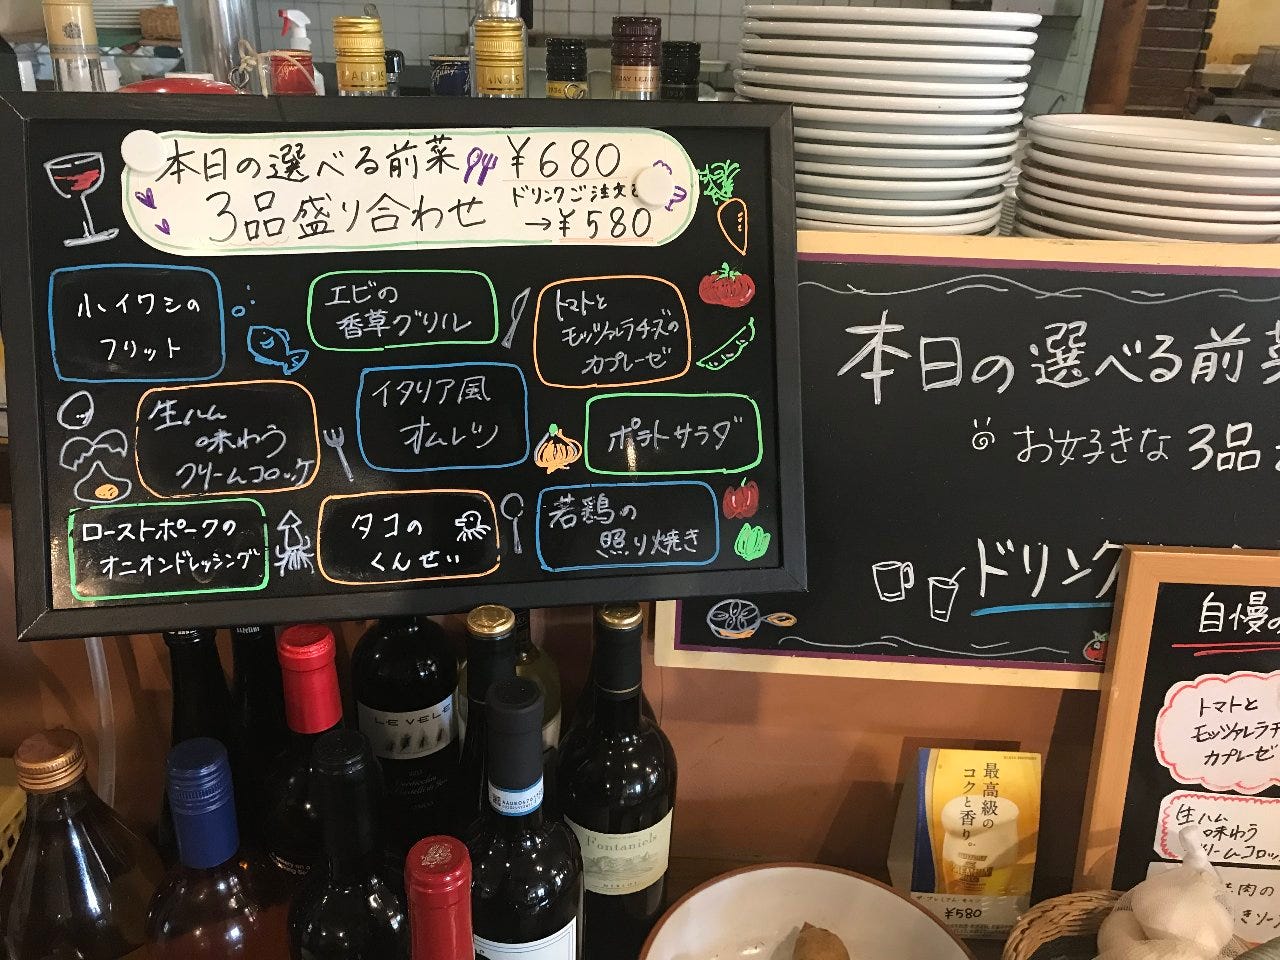 本日の選べる前菜 ¥680
3品盛り合わせ
ドリンクご注文
→¥580
小イワシの
フリット
エビの
香草グリル
トマトと
モッツァレラチーズの
カプレーゼ
生ハム
味わう
クリームコロッケ
イタリア風
オムレツ
ポテトサラダ
ローストポークの
オニオンドレッシング
タコの
くんせい
若鶏の
照り焼き
本日の選べる前菜
お好きな 3品
ドリンク
自慢の
トマトと
モッツァレラチ
カプレーゼ
生ハム
味わう
クリームコロッ
肉の
きソー
最高級の
コクと香り。
ザ・プレミアム・モルツ
¥580
LEVELE
Fontaniels
MERLOT